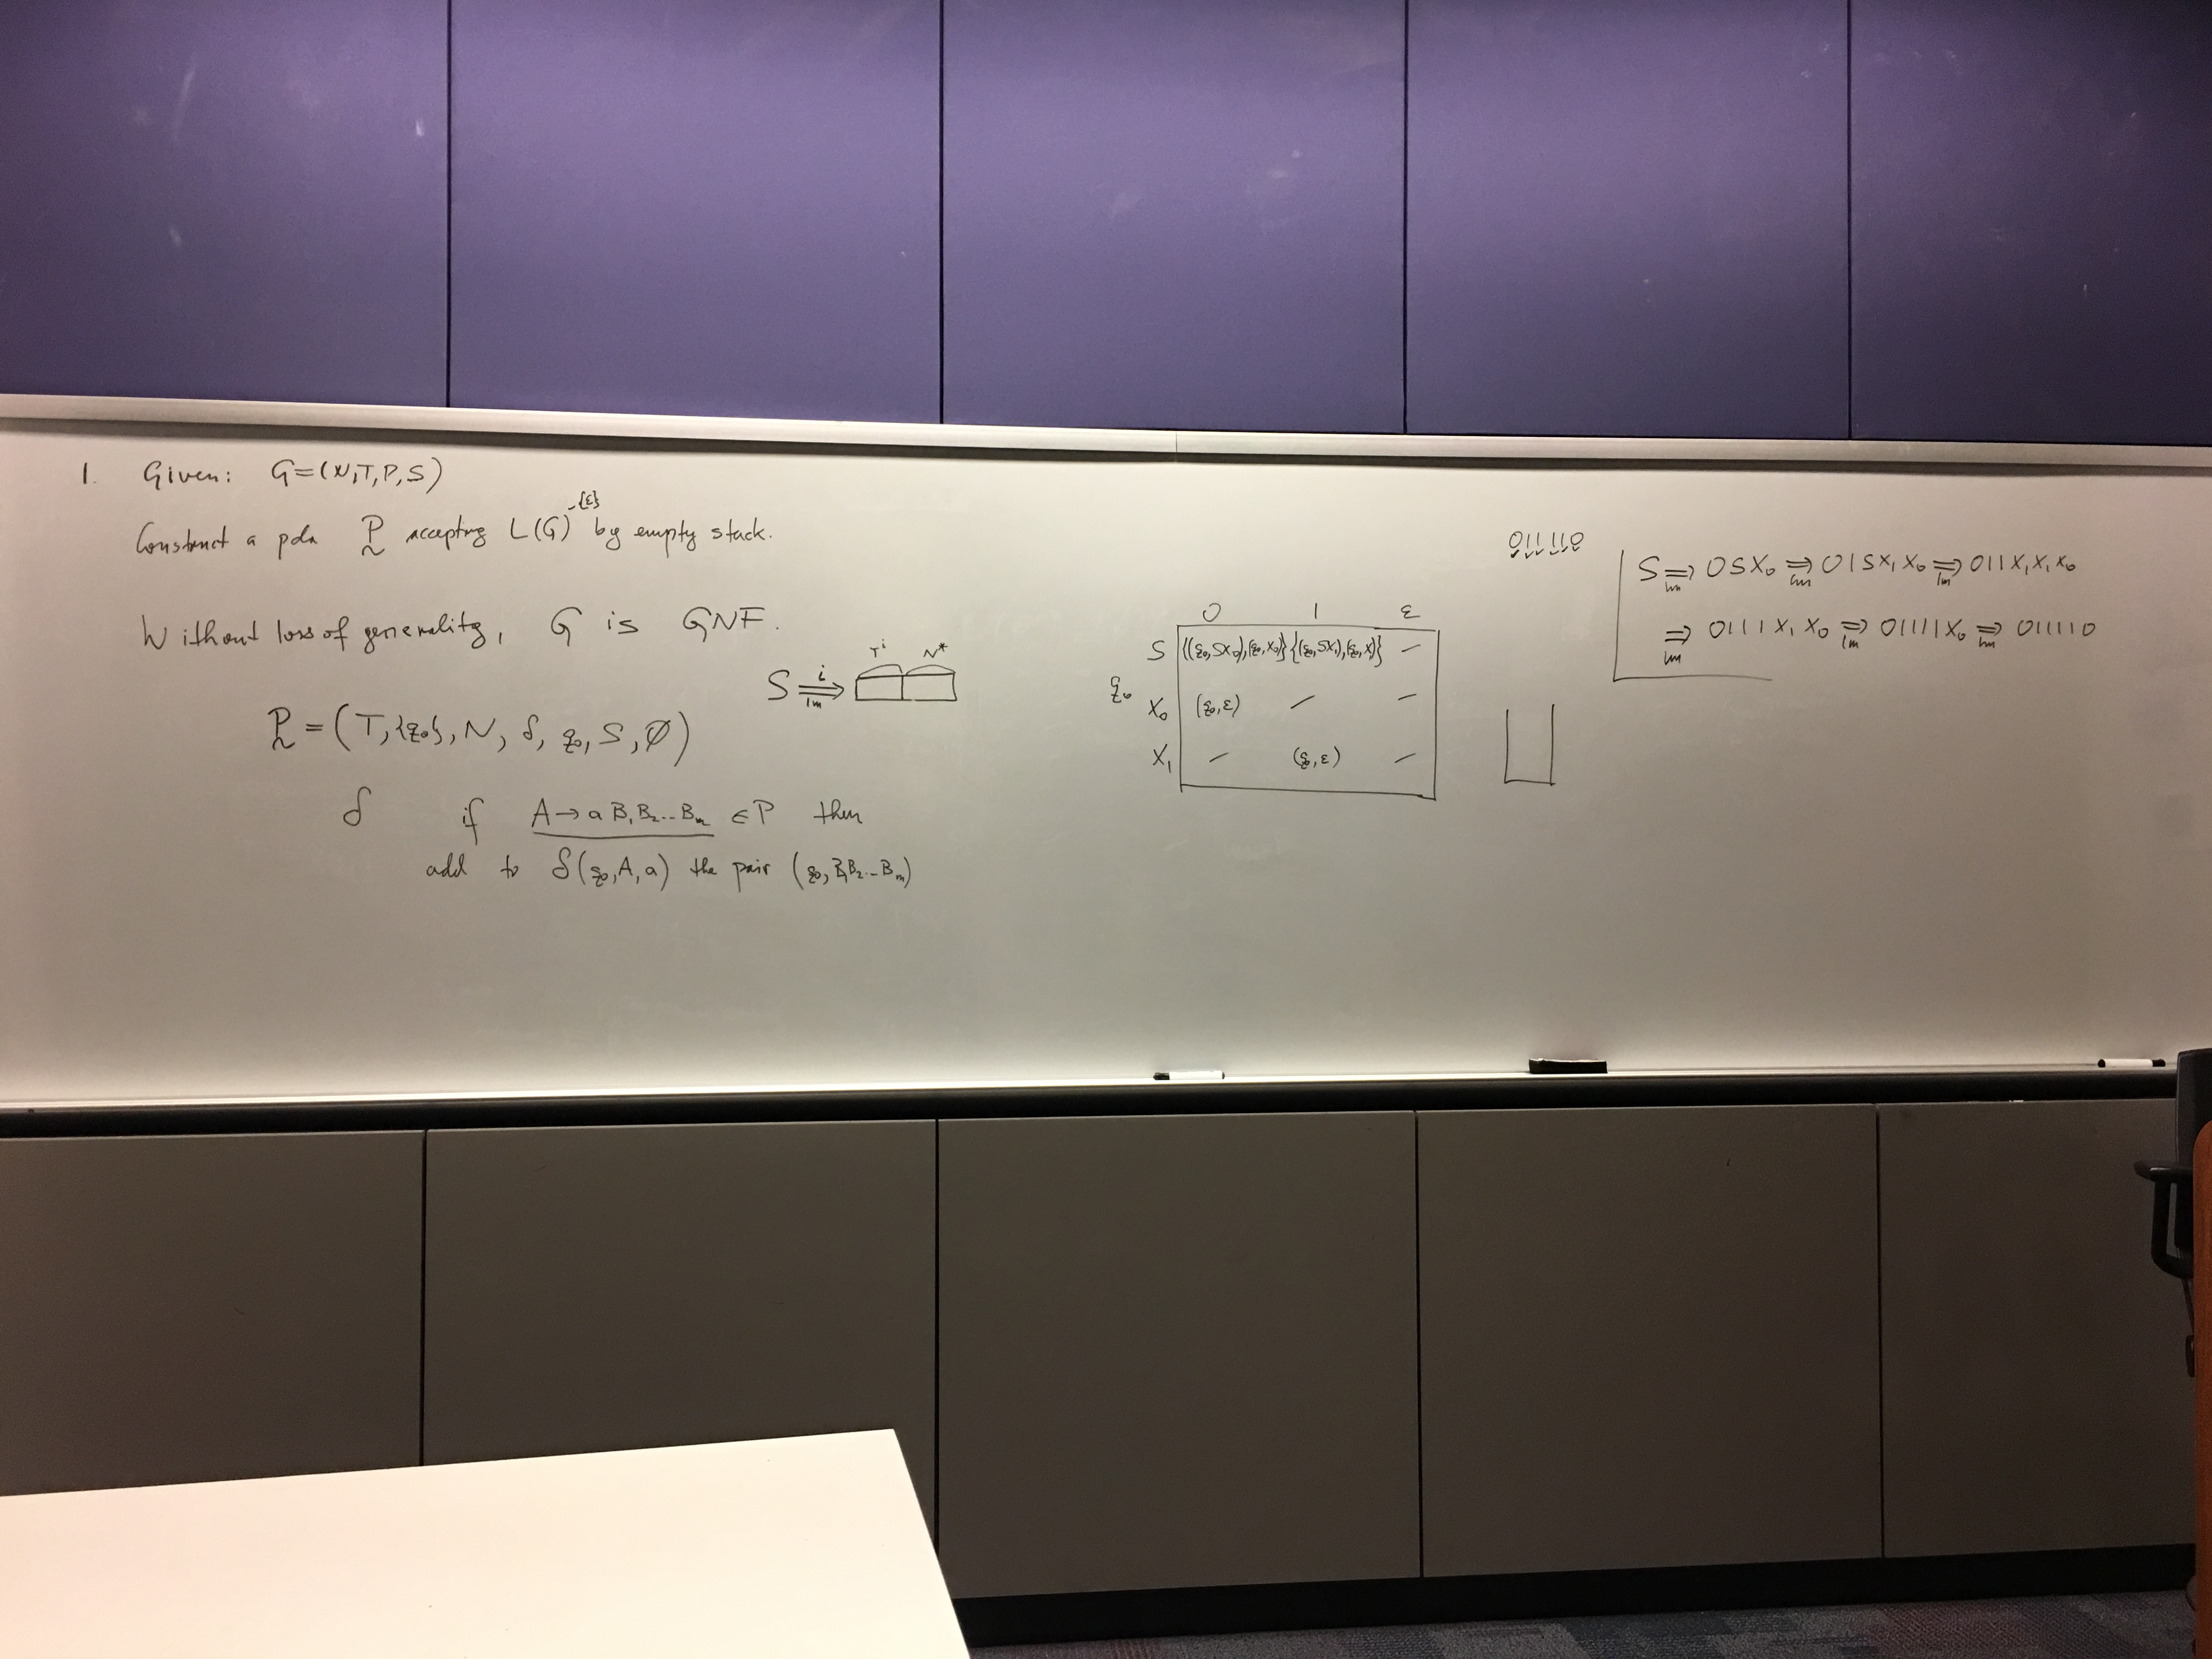 1. Given: G=(N,T,P,S)
Construct a pda P accepting L(G)-{ε} by empty stack.
Without loss of generality, G is GNF.
S ⇒ i lm Tⁱ N*
P = (T, {q₀}, N, δ, q₀, S, Ø)
δ if A→aB₁B₂...Bₘ ∈P then
add to δ(q₀,A,a) the pair (q₀,B₁B₂...Bₘ)
0 1 ε
S {(q₀,SX₀),(q₀,X₀)} {(q₀,SX₁),(q₀,X₁)} –
q₀ X₀ (q₀,ε) – –
X₁ – (q₀,ε) –
011110
S ⇒lm 0SX₀ ⇒lm 01SX₁X₀ ⇒lm 011X₁X₁X₀
⇒lm 0111X₁X₀ ⇒lm 01111X₀ ⇒lm 011110